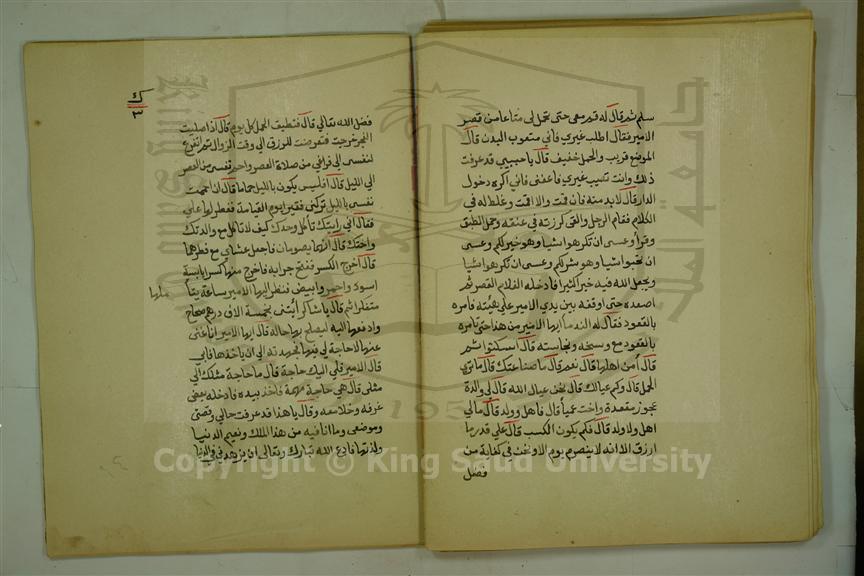 سلم ثم قال له قم معى حتى تحمل لى متاعا من قصر
الامير فقال اطلب غيري فاني متعوب البدن قال
الموضع قريب والحمل خفيف قال يا حبيبي قد عرفت
ذلك وانت تصيب غيري فاعفنى فاني اكره دخول
الدار قال لابد منه فان قمت والا اقمت وغلظ له في
الكلام فقام الرجل والقى كرزته في عنقه وحمل الطبق
وقرأ وعسى ان تكرهوا شيا وهو خير لكم وعسى
ان تحبوا شيا وهو شر لكم وعسى ان تكرهوا شيا
ويجعل الله فيه خيرا كثيرا فادخله الغلام القصر ثم
اصعده حتى اوقفه بين يدي الامير علي هيئته فامره
بالقعود فقال له الندما ايها الامير من هذا حتى تامره
بالقعود مع وسخه ونجاسته قال اسكتوا ثم
قال أمن اهلها قال نعم قال ما صناعتك قال ما ترى
الحمل قال وكم عيالك قال نحن عيال الله قال لى والدة
عجوز مقعدة واخت عميا قال فاهل وولد قال مالي
اهل ولا ولد قال فكم يكون الكسب قال على قدر ما
ارزق الا انه لا ينصرم يوم الا ونحن في كفاية من
فضل
ك
٣
فضل الله تعالي قال فتطيق الحمل كل يوم قال اذا صليت
الفجر خرجت فتعرضت للرزق الي وقت الزوال ثم اتفرغ
لنفسى الي فراغي من صلاة العصر واجم نفسى من العصر
الي الليل قال افليس يكون بالليل جماما قال ان اجممت
نفسى بالليل تركتنى فقيرا يوم القيامة ففطن لها علي
فقال انى رايتك تاكل وحدك كيف لا تاكل مع والدتك
واختك قال انهما يصومان فاجعل عشاى مع فطرهما
قال اخرج الكسر ففتح جرابه فاخرج منها كسرا يابسة
اسود واحمر وابيض فنظر اليها الامير ساعة يتأ
ملها
متفكرا ثم قال يا شاكر أيتنى بخمسة الاف درهم صحاح
وادفعها اليه ليصلح بها حاله قال ايها الامير انا غنى
عنها لا حاجة لي فيها فجهد به الي ان ياخذها فابي
قال الامير فلي اليك حاجة قال ما حاجة مثلك الي
مثلى قال هي حاجة مهمة فاخذ بيده فادخله بعض
غرفه وخلا معه وقال يا هذا قد عرفت حالي وقصتى
وموضعى وما انا فيه من هذا الملك ونعيم الدنيا
ولذتها فادع الله تبارك وتعالى ان يزهدني في الدنيا
Copyright © King Saud University
195